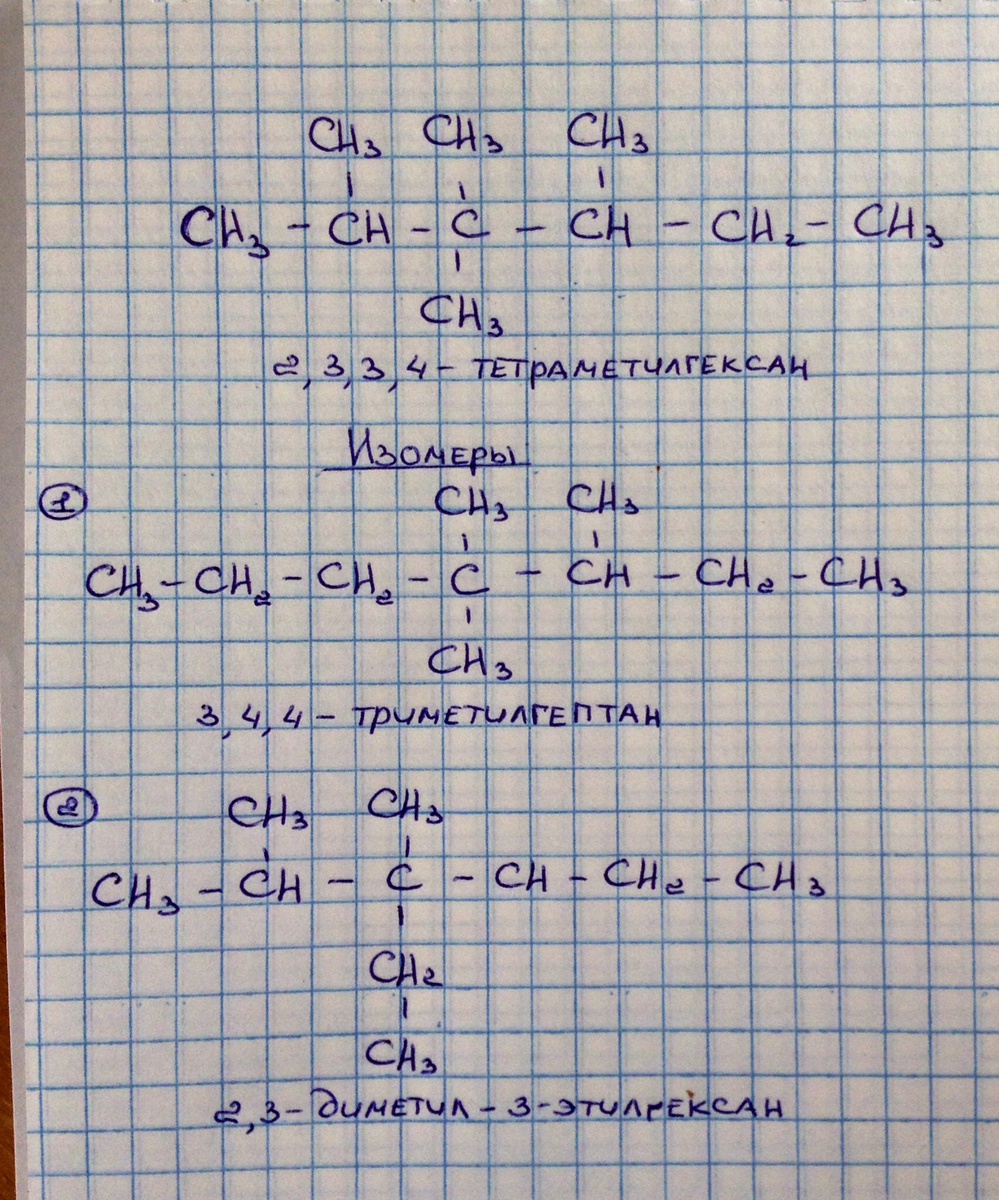 CH₃ CH₃ CH₃
CH₃ – CH – C – CH – CH₂ – CH₃
CH₃
2,3,3,4 – ТЕТРАМЕТИЛГЕКСАН
Изомеры
1
CH₃ CH₃
CH₃ – CH₂ – CH₂ – C – CH – CH₂ – CH₃
CH₃
3,4,4 – ТРИМЕТИЛГЕПТАН
2
CH₃ CH₃
CH₃ – CH – C – CH – CH₂ – CH₃
CH₂
CH₃
2,3 – ДИМЕТИЛ – 3 – ЭТИЛГЕКСАН